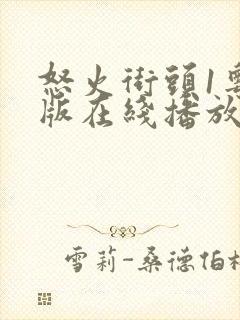 怒火街頭1
版在綫播放
雪莉-桑德伯